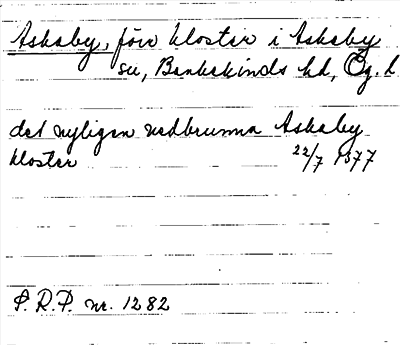 Askaby, förv kloster i Askaby
sn, Bankekinds hd, Ög. l
det nyligen nedbrunna Askaby
kloster 22/7 1377
S.R.P. nr. 1282